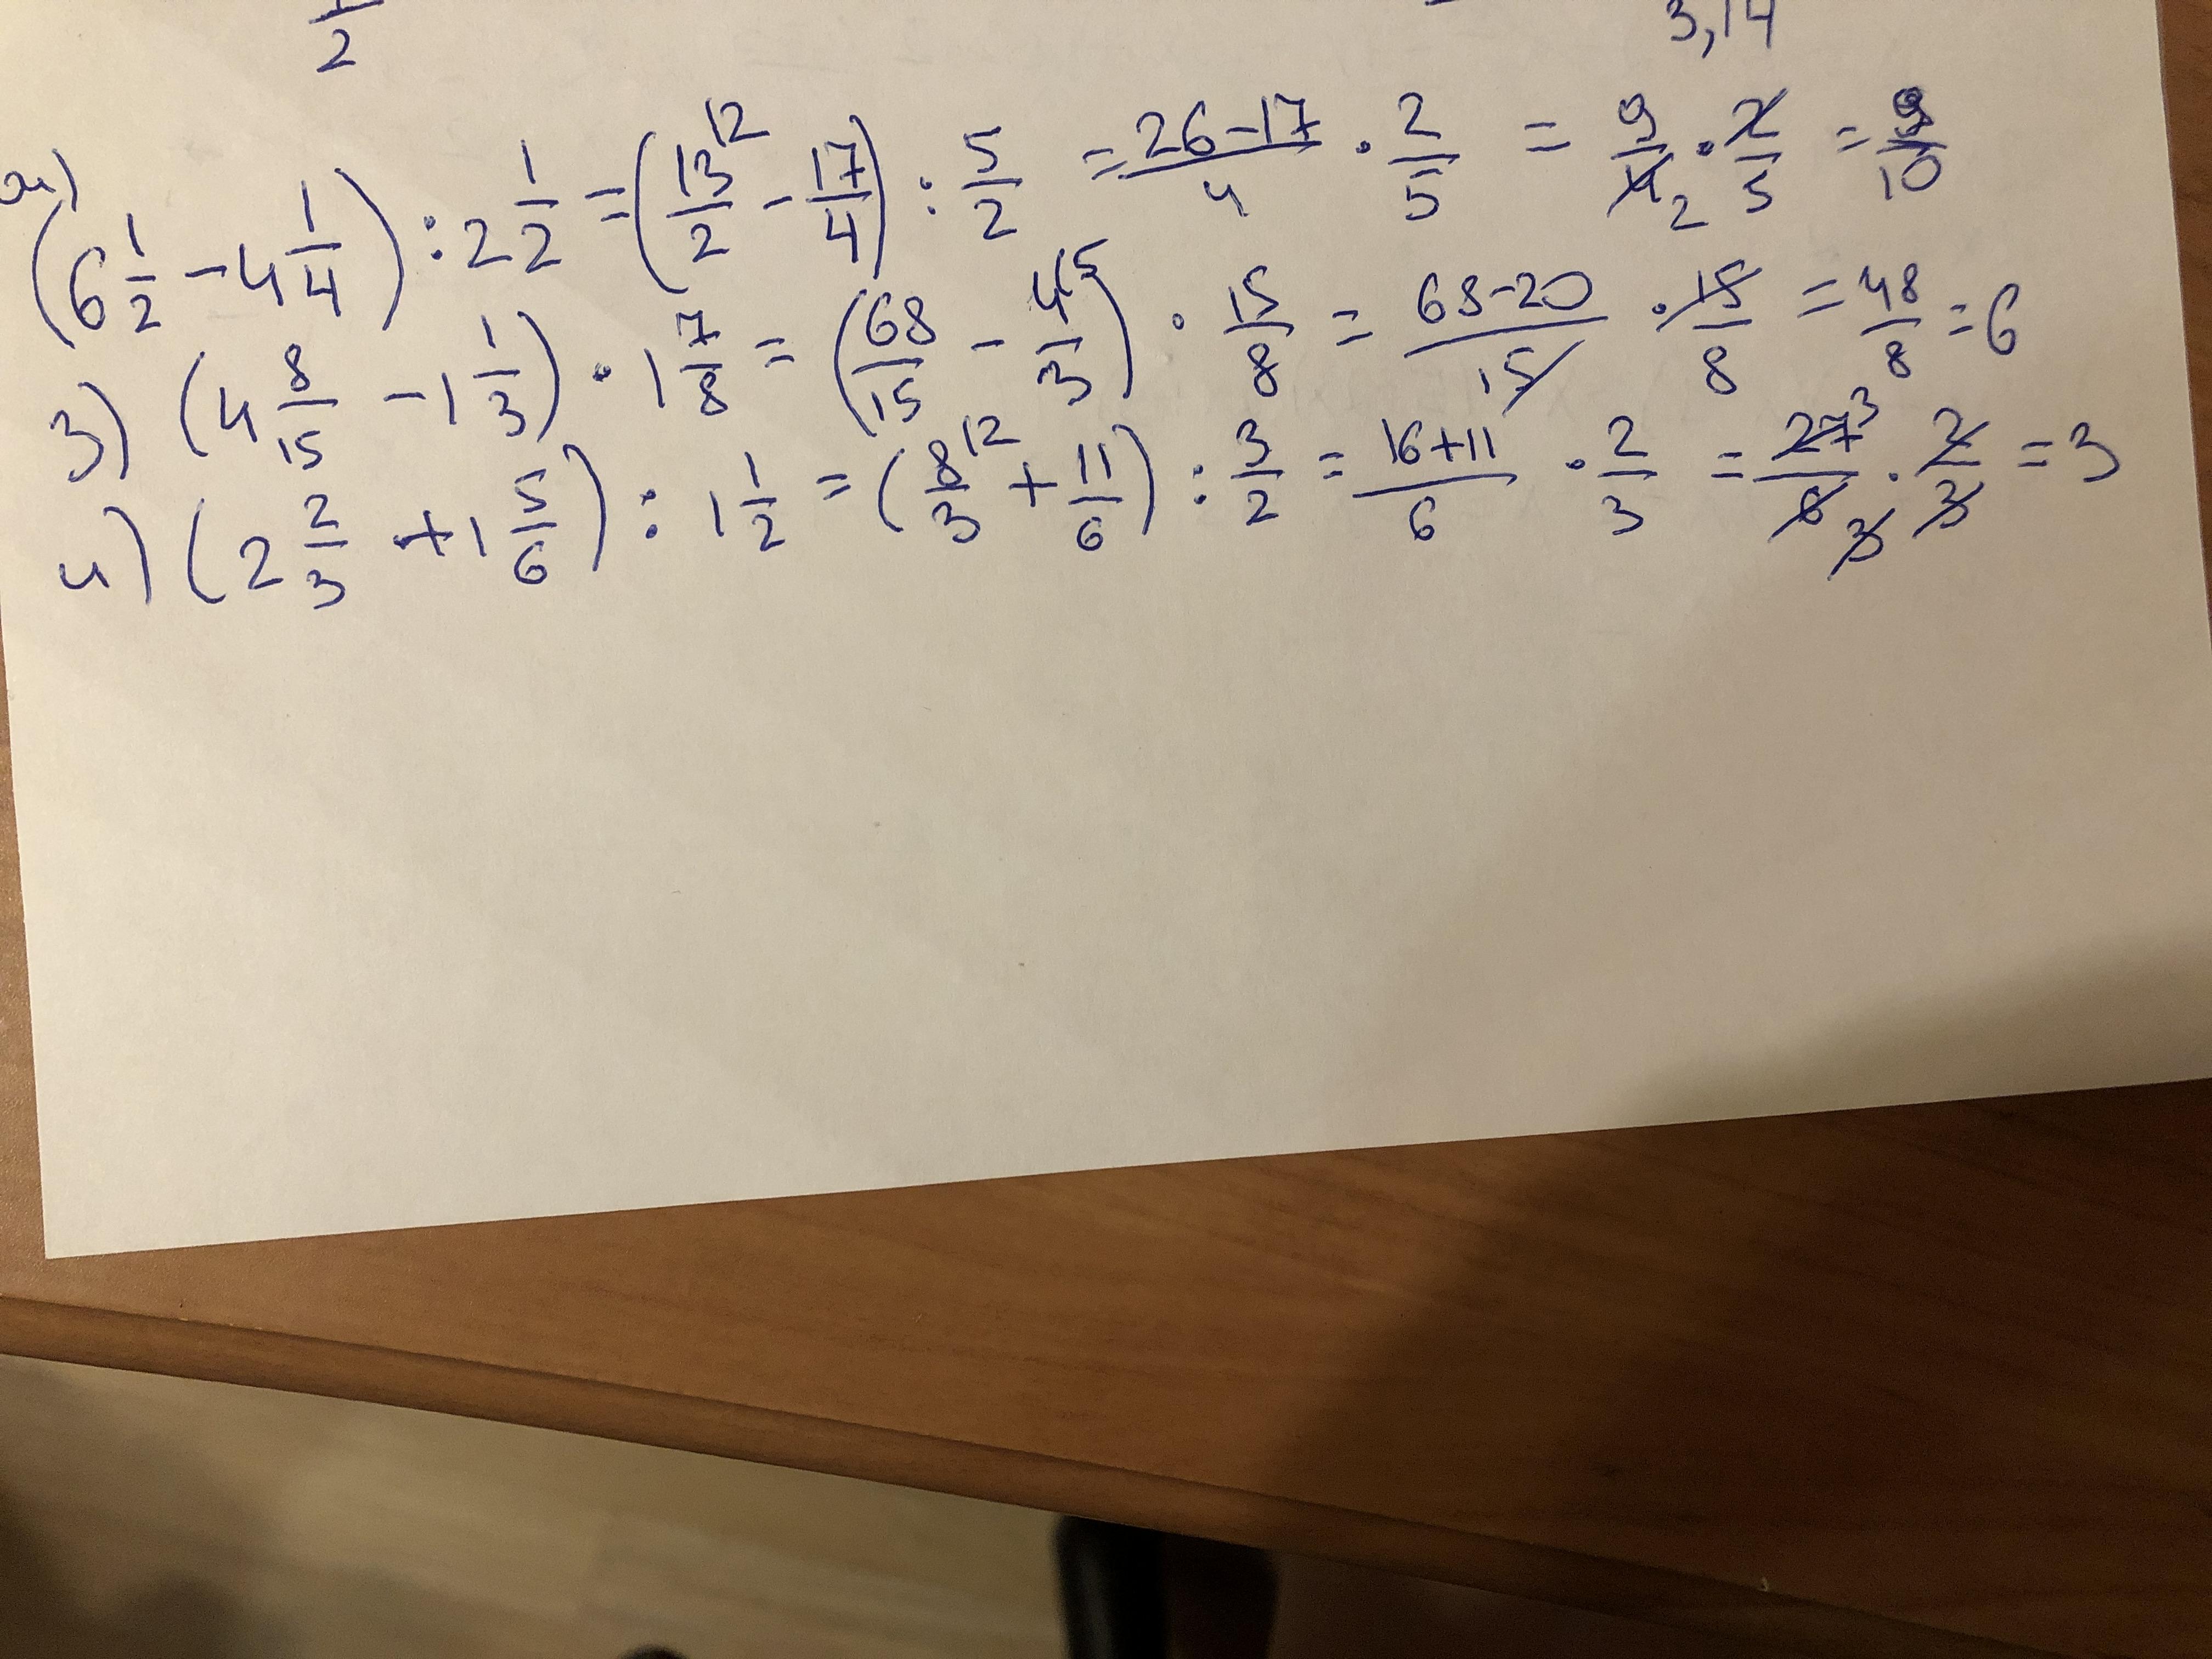 1/2 3,14
2) (6 1/2 - 4 1/4) : 2 1/2 = (13/2 ^12 - 17/4) : 5/2 = (26-17)/4 · 2/5 = 9/4 2 · 2/5 = 9/10
3) (4 8/15 - 1 1/3) · 1 7/8 = (68/15 - 4/3 ^15) · 15/8 = (68-20)/15 · 15/8 = 48/8 = 6
4) (2 2/3 + 1 5/6) : 1 1/2 = (8/3 ^12 + 11/6) : 3/2 = (16+11)/6 · 2/3 = 27/6 ^3 3 · 2/3 = 3